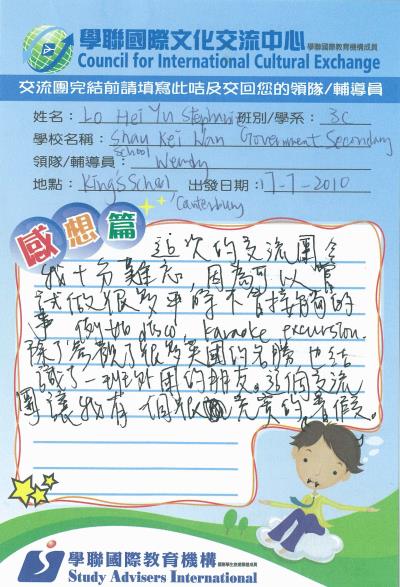 學聯國際文化交流中心 學聯國際教育機構成員
Council for International Cultural Exchange
交流團完結前請填寫此咭及交回您的領隊/輔導員
姓名: Lo Hei Yu 班別/學系: 3C
學校名稱: Shau Kei Wan Government Secondary
School
領隊/輔導員: Wendy
地點: King's School 出發日期: 17-7-2010
Canterbury
感想篇
這次的交流團令
我十分難忘,因為可以嘗
試做很多平時不會接觸的
事, 例如 disco, karaoke, excursion.
除了參觀了很多英國的名勝,也結
識了一班外國的朋友。這個交流
團讓我有一個很充實的暑假。
學聯國際教育機構
Study Advisers International